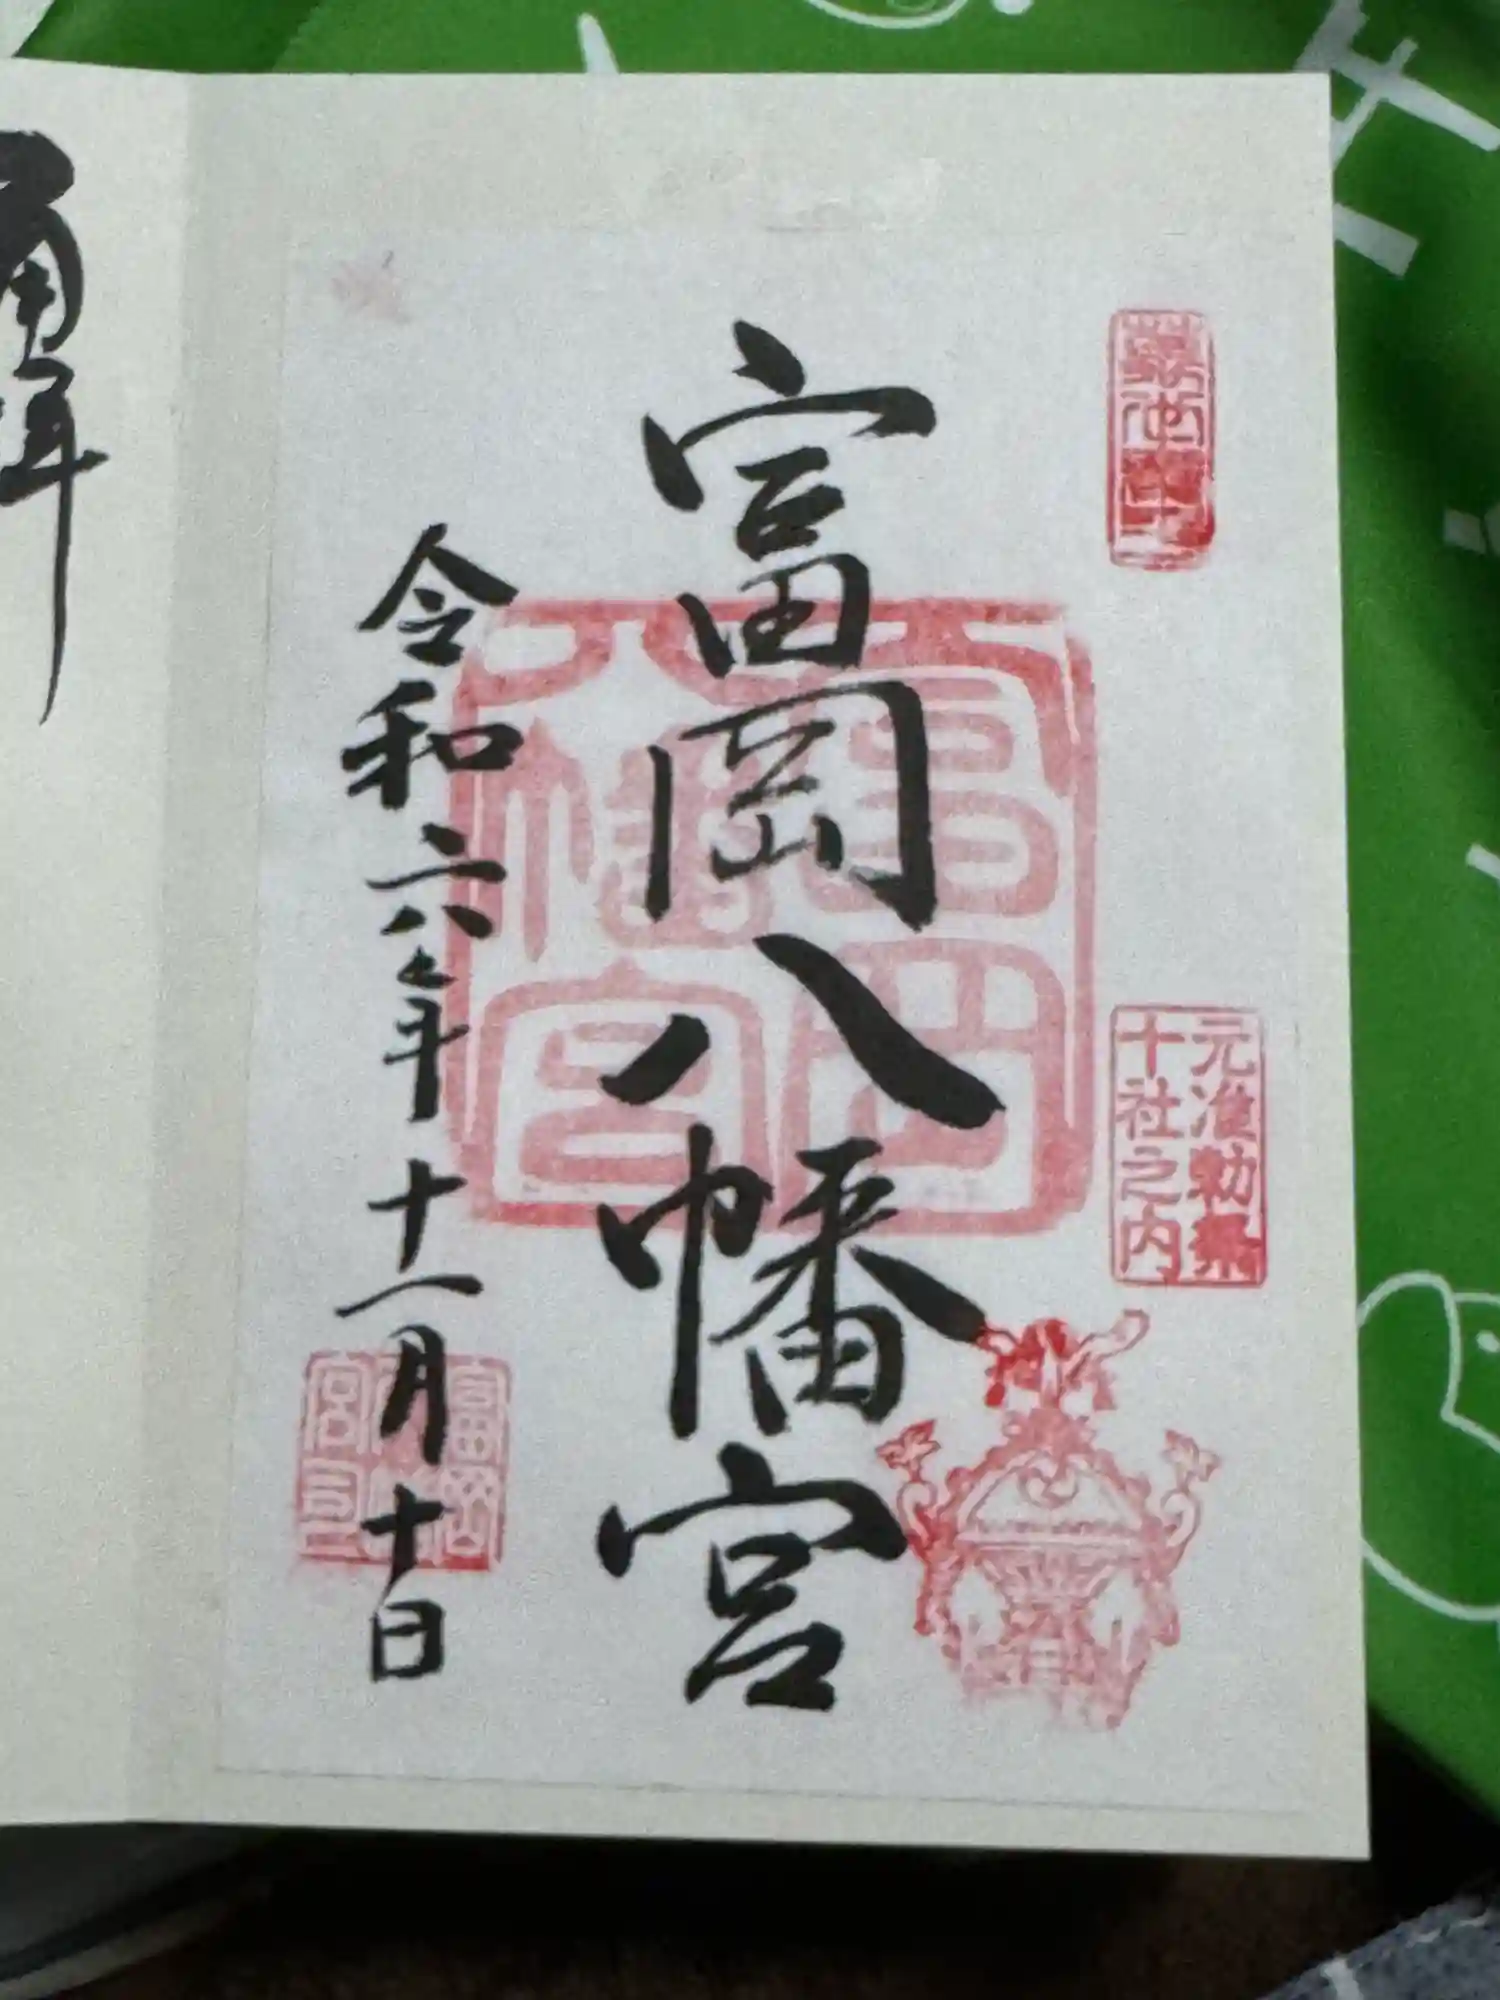 元准勅祭
十社之内
富岡八幡宮
富岡
八幡
宮
令和六年十一月十日
拝